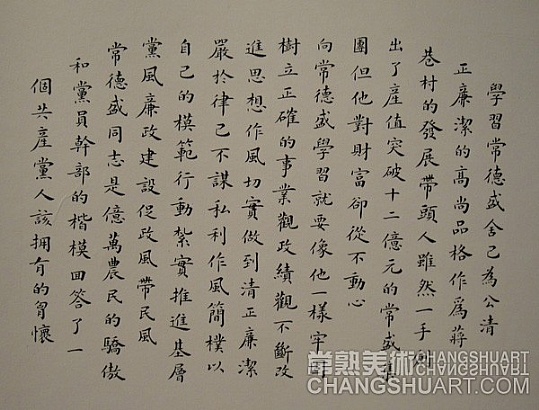 學習常德盛舍己為公清
正廉潔的高尚品格作爲蔣
巷村的發展帶頭人雖然一手創
出了產值突破十二億元的常盛集
團但他對財富卻從不動心
向常德盛學習就要像他一樣牢固
樹立正確的事業觀政績觀不斷改
進思想作風切實做到清正廉潔
嚴於律己不謀私利作風簡樸以
自己的模範行動紮實推進基層
黨風廉政建設促政風帶民風
常德盛同志是億萬農民的驕傲
和黨員幹部的楷模回答了一
個共產黨人該擁有的胷懷
常熟美術CHANGSHUART
CHANGSHUART.COM